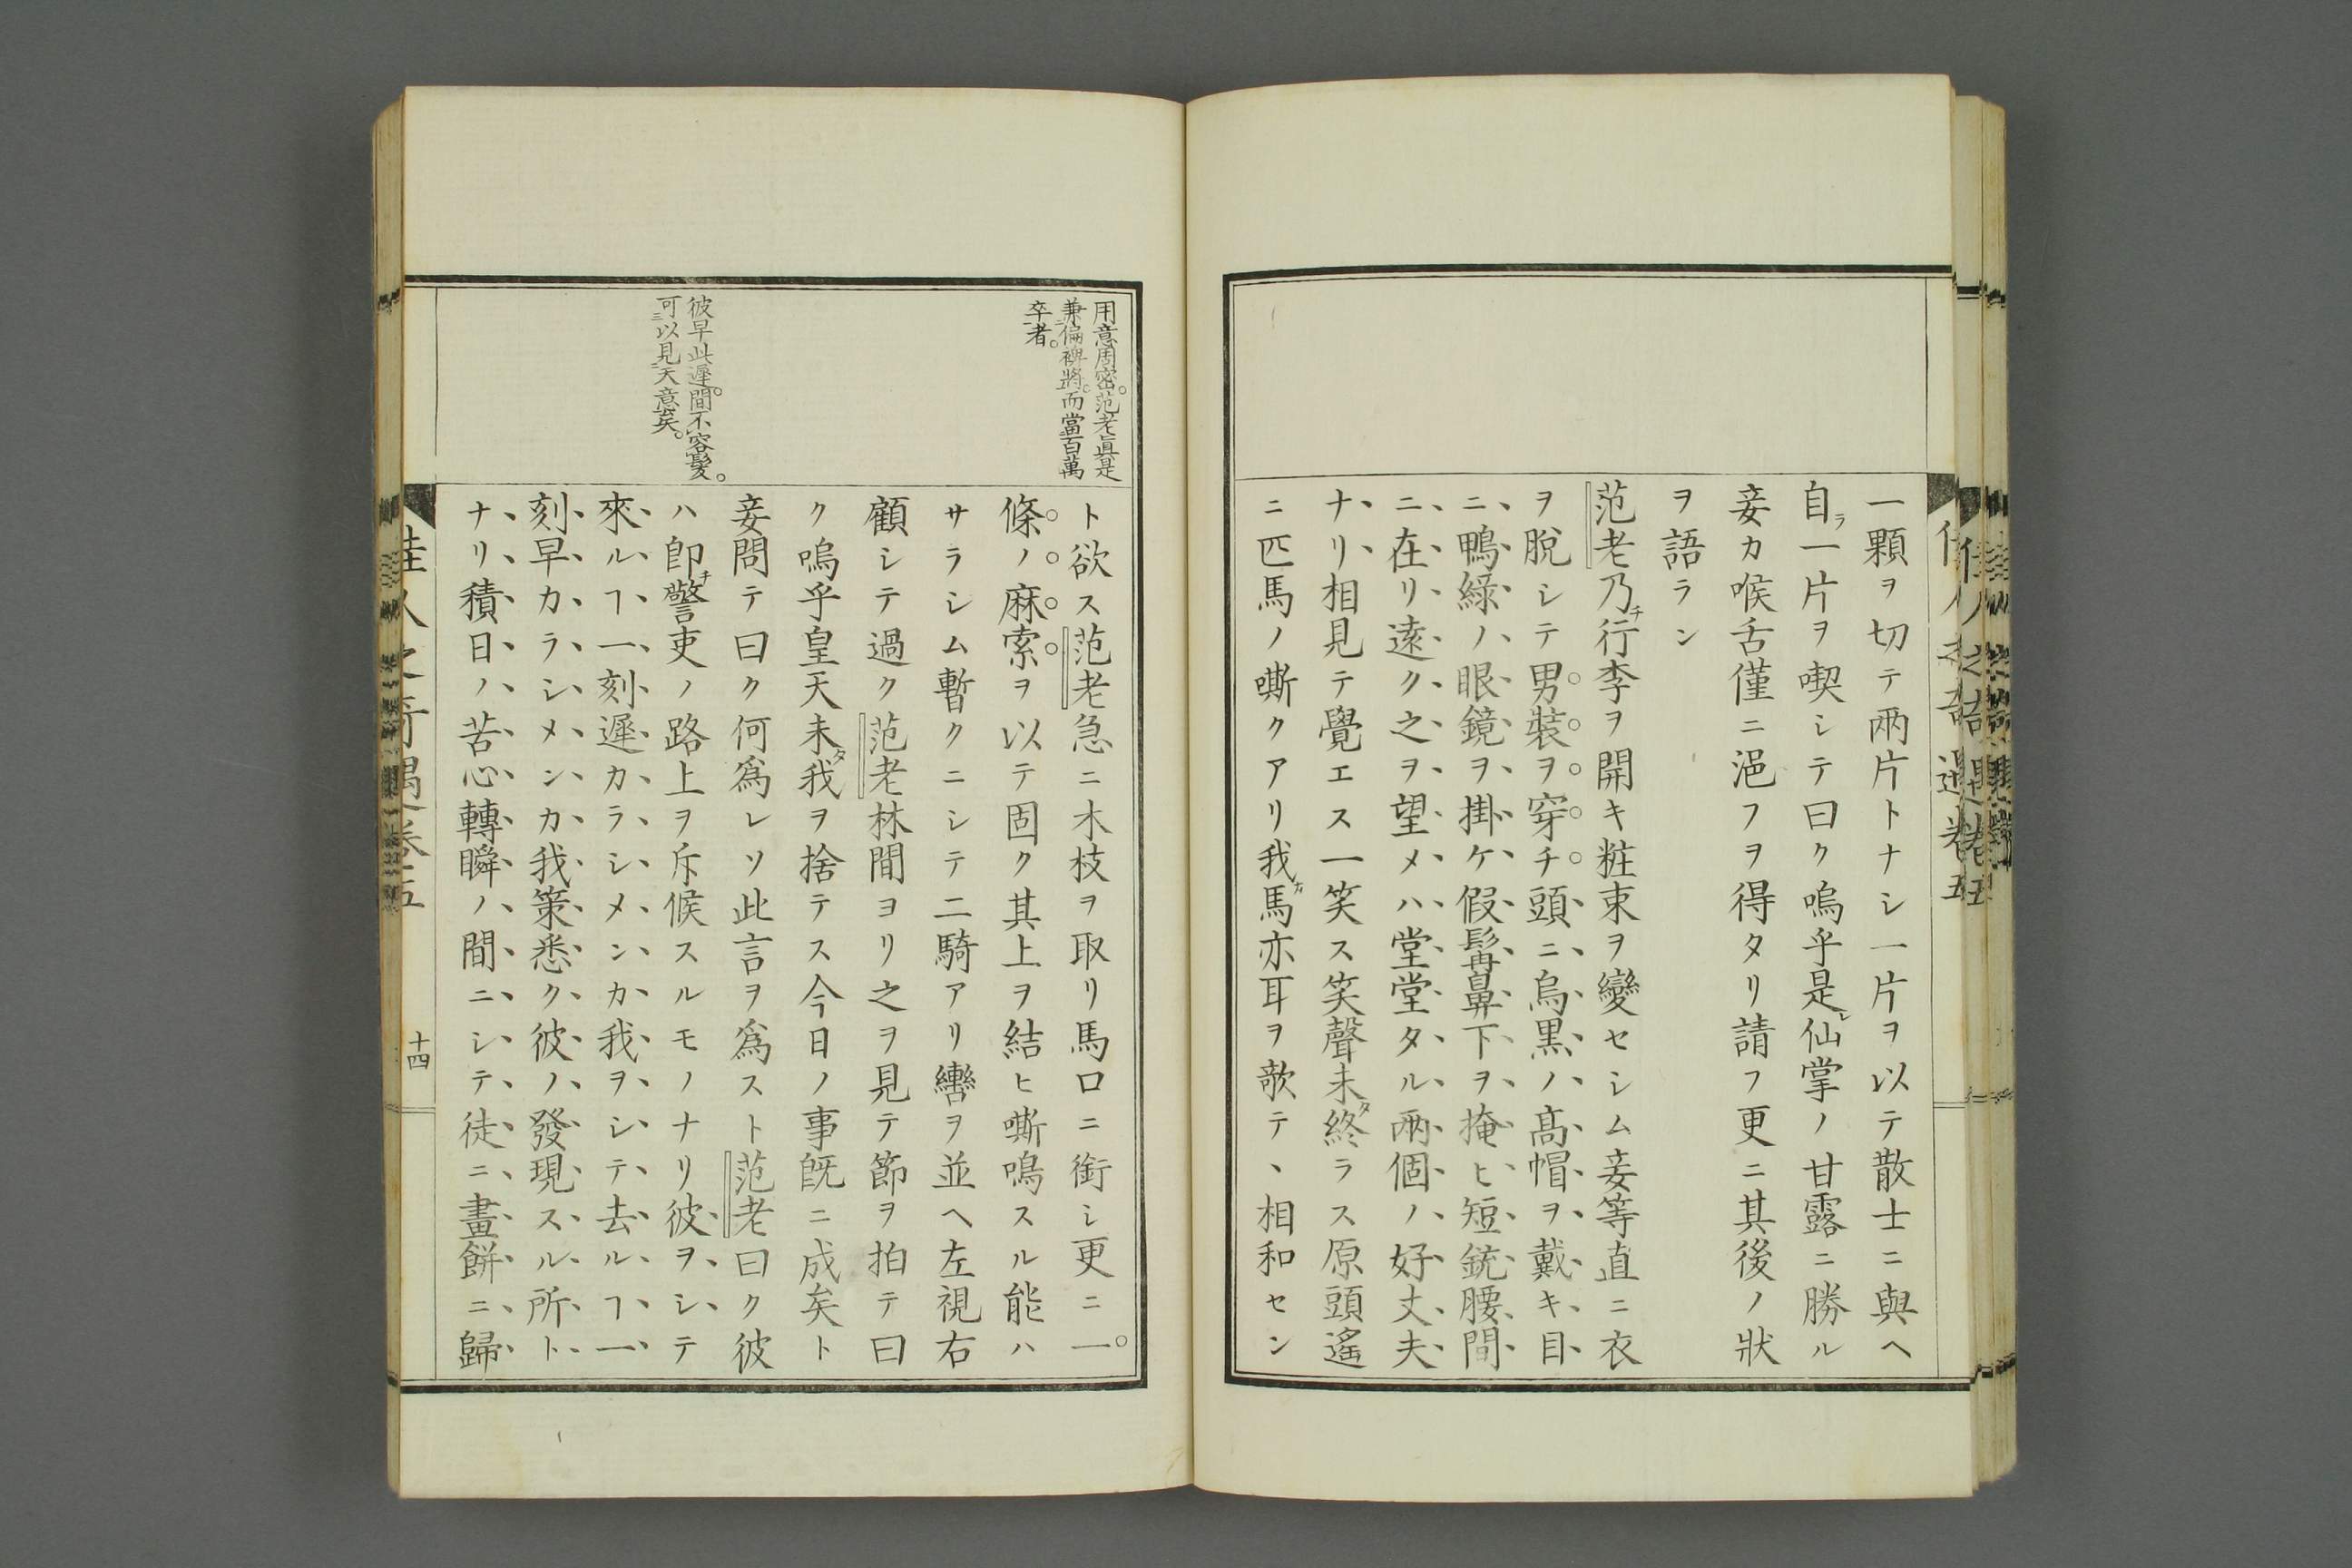 一顆ヲ切テ兩片トナシ一片ヲ以テ散士ニ與ヘ
自ラ一片ヲ喫シテ曰ク嗚乎是レ仙掌ノ甘露ニ勝ル
妾カ喉舌僅ニ浥フヲ得タリ請フ更ニ其後ノ狀
ヲ語ラン
范老乃チ行李ヲ開キ粧束ヲ變セシム妾等直ニ衣
ヲ脫シテ男裝ヲ穿チ頭ニ烏黒ノ髙帽ヲ戴キ目
ニ鴨綠ノ眼鏡ヲ掛ケ假髯鼻下ヲ掩ヒ短銃腰間
ニ在リ遠ク之ヲ望メハ堂堂タル兩個ノ好丈夫
ナリ相見テ覺エス一笑ス笑聲未タ終ラス原頭遙
ニ匹馬ノ嘶クアリ我カ馬亦耳ヲ欹テヽ相和セン
用意周密。范老眞是
兼二偏裨將。而當百萬
卒一者。
彼早此遲。間不容髮。
可三以見二天意矣。
ト欲ス范老急ニ木枝ヲ取リ馬口ニ銜シ更ニ一
條ノ麻索ヲ以テ固ク其上ヲ結ヒ嘶鳴スル能ハ
サラシム暫クニシテ二騎アリ轡ヲ並ヘ左視右
顧シテ過ク范老林間ヨリ之ヲ見テ節ヲ拍テ曰
ク嗚乎皇天未タ我ヲ捨テス今日ノ事既ニ成矣ト
妾問テ曰ク何爲レソ此言ヲ爲スト范老曰ク彼
ハ卽チ警吏ノ路上ヲ斥候スルモノナリ彼ヲシテ
來ルヿ一刻遲カラシメンカ我ヲシテ去ルヿ一
刻早カラシメンカ我策悉ク彼ノ發現スル所ト
ナリ積日ノ苦心轉瞬ノ間ニシテ徒ニ畫餅ニ歸
佳人之奇遇卷五
十四